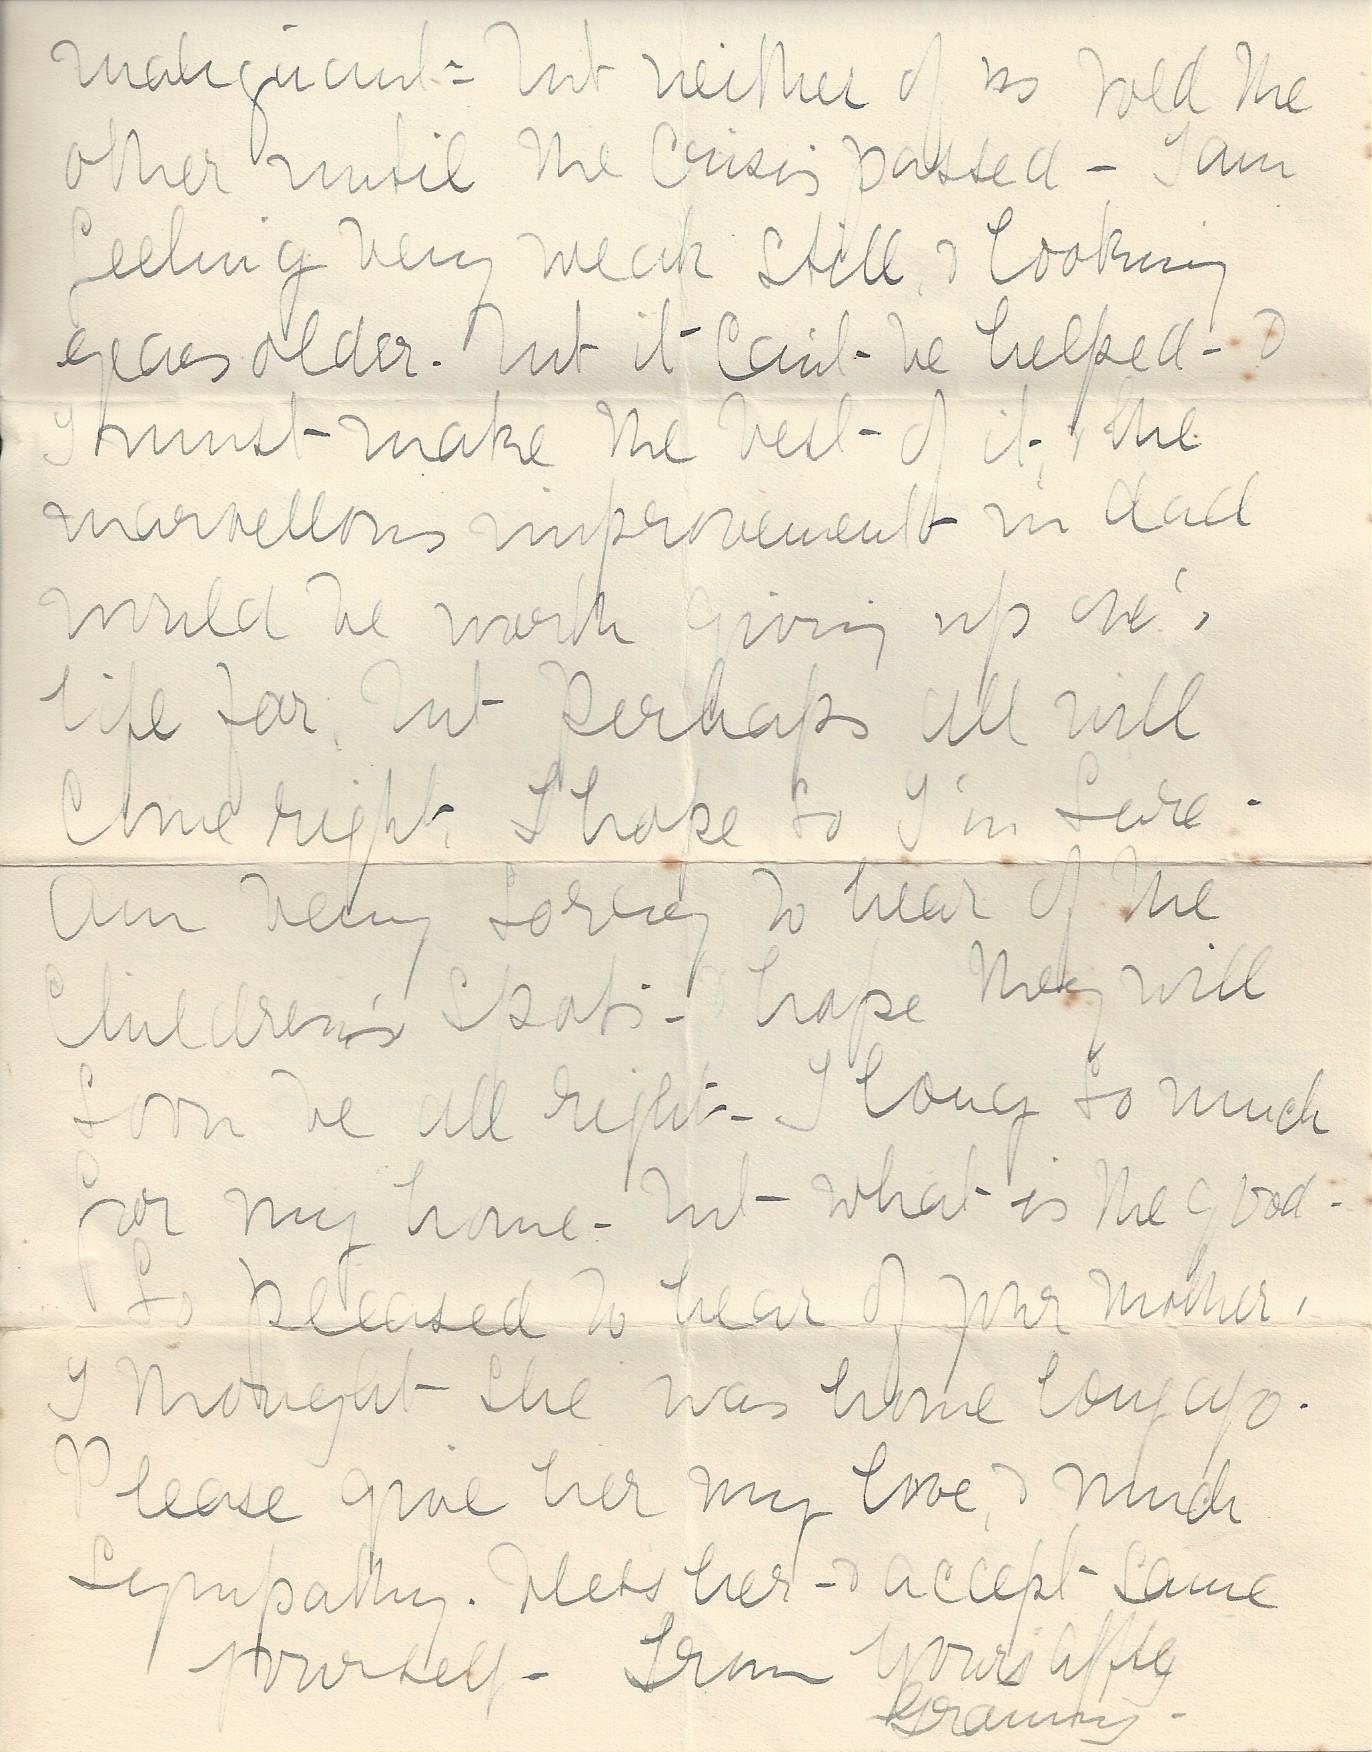 malignant - but neither of us told the
other until the Crisis passed - I am
feeling very weak still, & looking
years older. but it can't be helped - &
I must make the best of it, the
marvellous improvement in dad
would be worth giving up one's
life for, but perhaps all will
Come right. I hope so I'm sure -
Am very sorry to hear of the
Children's Spots - & hope they will
soon be all right - I long so much
for my home - but what is the good -
So pleased to hear of your mother,
I thought she was home long ago.
Please give her my love, & much
sympathy. bless her - & accept same
yourself - From Yours affly
Granny -